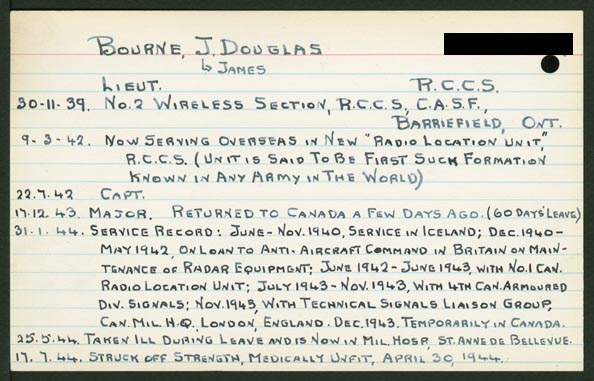 BOURNE, J. DOUGLAS
↳ JAMES
LIEUT. R.C.C.S.
30-11-39. NO.2 WIRELESS SECTION, R.C.C.S, C.A.S.F.,
BARRIEFIELD, ONT.
9-3-42. NOW SERVING OVERSEAS IN NEW "RADIO LOCATION UNIT,"
R.C.C.S. (UNIT IS SAID TO BE FIRST SUCH FORMATION
KNOWN IN ANY ARMY IN THE WORLD)
22.7.42 CAPT.
17.12.43. MAJOR. RETURNED TO CANADA A FEW DAYS AGO. (60 DAYS' LEAVE)
31.1.44. SERVICE RECORD: JUNE-NOV.1940, SERVICE IN ICELAND; DEC.1940-
MAY 1942, ON LOAN TO ANTI-AIRCRAFT COMMAND IN BRITAIN ON MAIN-
TENANCE OF RADAR EQUIPMENT; JUNE 1942-JUNE 1943, WITH NO.1 CAN.
RADIO LOCATION UNIT; JULY 1943-NOV.1943, WITH 4TH CAN. ARMOURED
DIV. SIGNALS; NOV.1943, WITH TECHNICAL SIGNALS LIAISON GROUP,
CAN. MIL. H.Q. LONDON, ENGLAND. DEC.1943. TEMPORARILY IN CANADA.
25.5.44. TAKEN ILL DURING LEAVE AND IS NOW IN MIL. HOSP, ST. ANNE DE BELLEVUE.
17.7.44. STRUCK OFF STRENGTH, MEDICALLY UNFIT, APRIL 30, 1944.